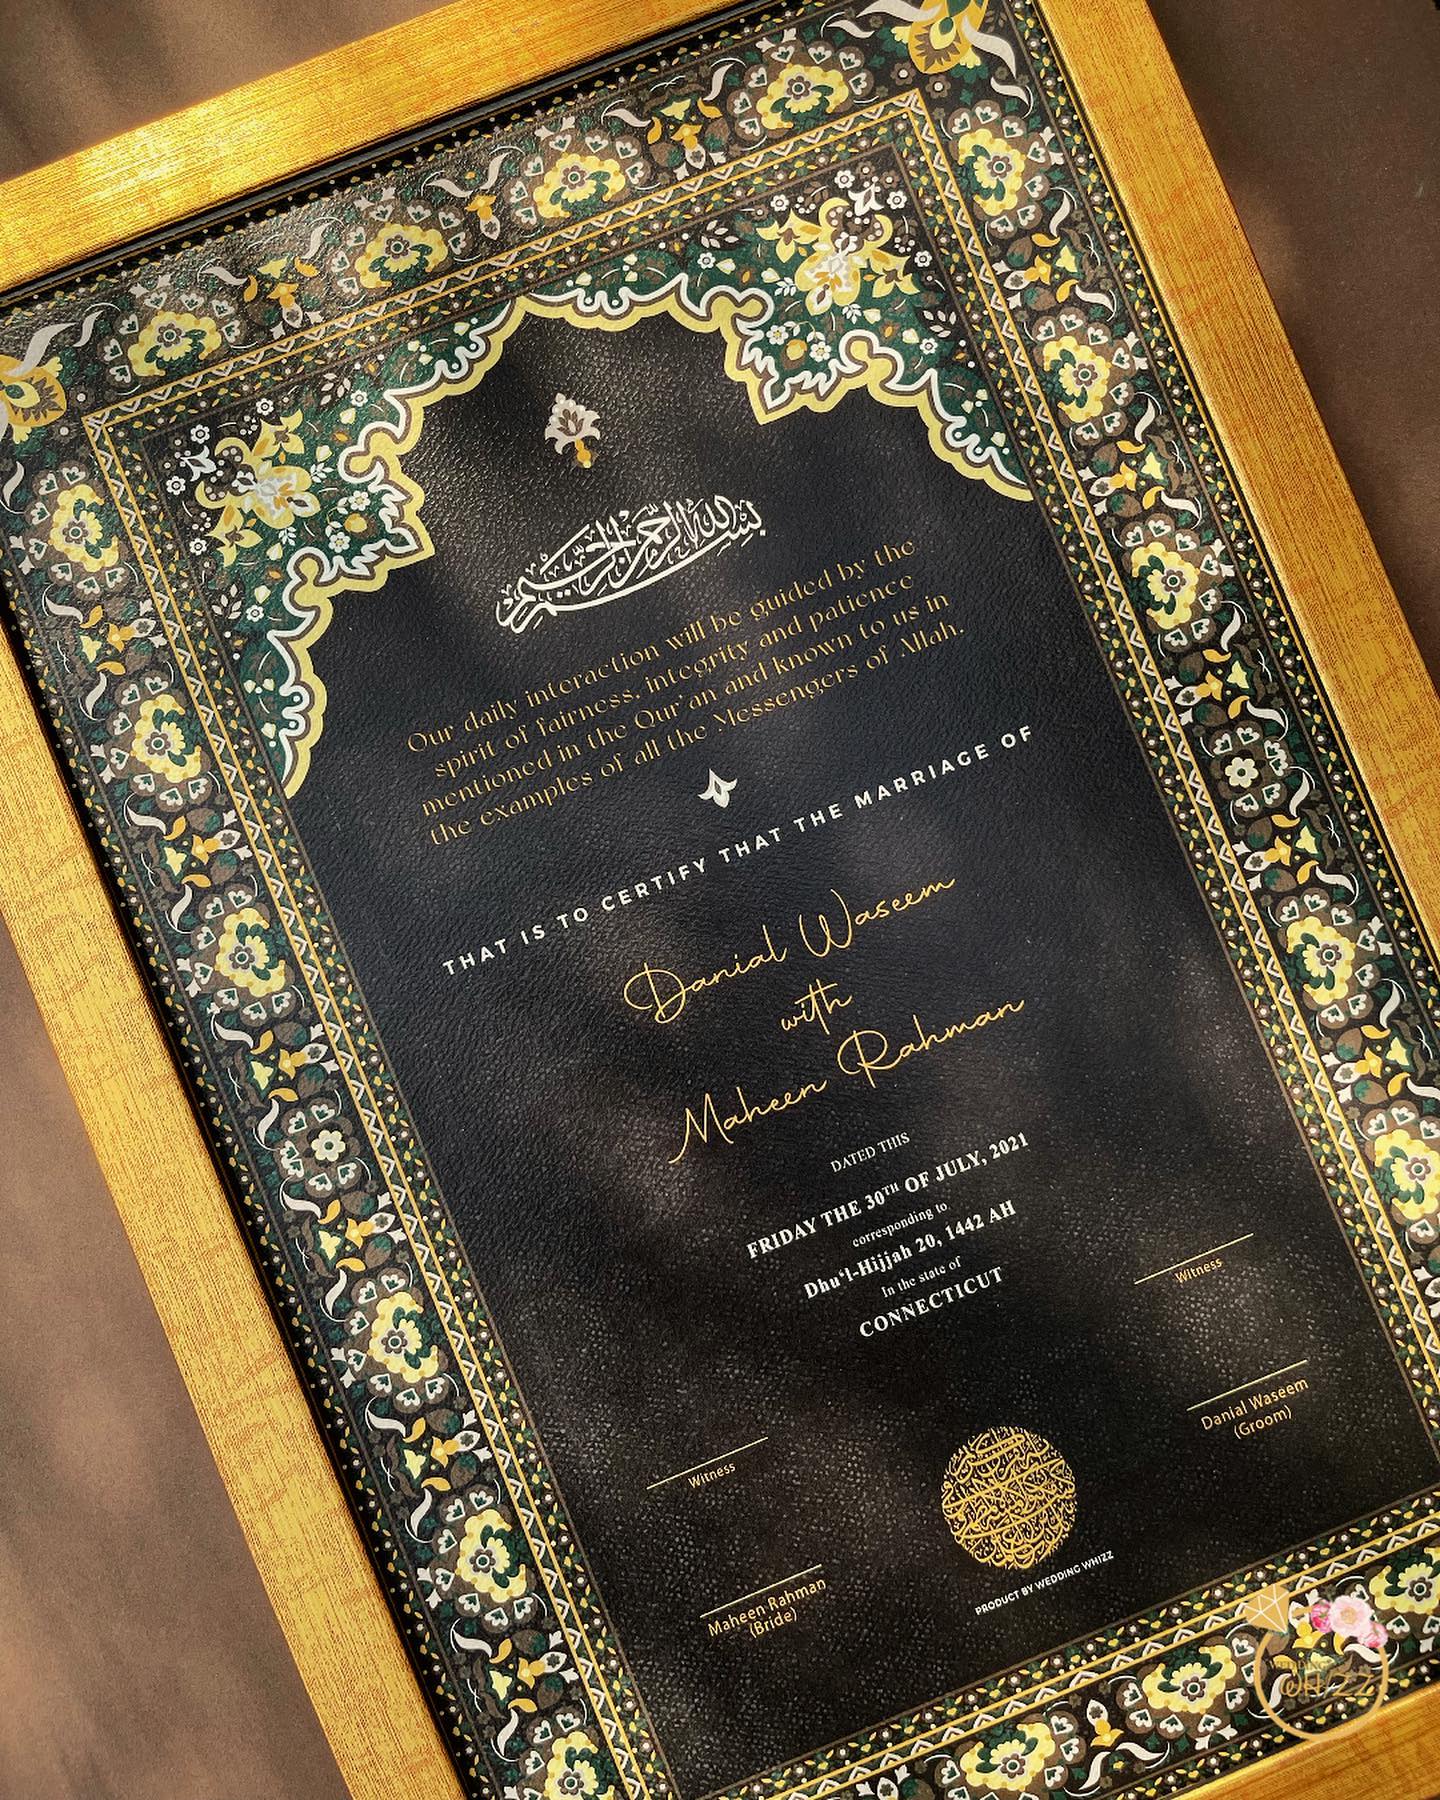 بسم الله الرحمن الرحيم
Our daily interaction will be guided by the
spirit of fairness, integrity and patience
mentioned in the Qur'an and known to us in
the examples of all the Messengers of Allah.
THAT IS TO CERTIFY THAT THE MARRIAGE OF
Danial Waseem
with
Maheen Rahman
DATED THIS
FRIDAY THE 30TH OF JULY, 2021
corresponding to
Dhu‘l-Hijjah 20, 1442 AH
In the state of
CONNECTICUT
Witness
Witness
Danial Waseem
(Groom)
Maheen Rahman
(Bride)
PRODUCT BY WEDDING WHIZZ
WEDDING
WHIZZ